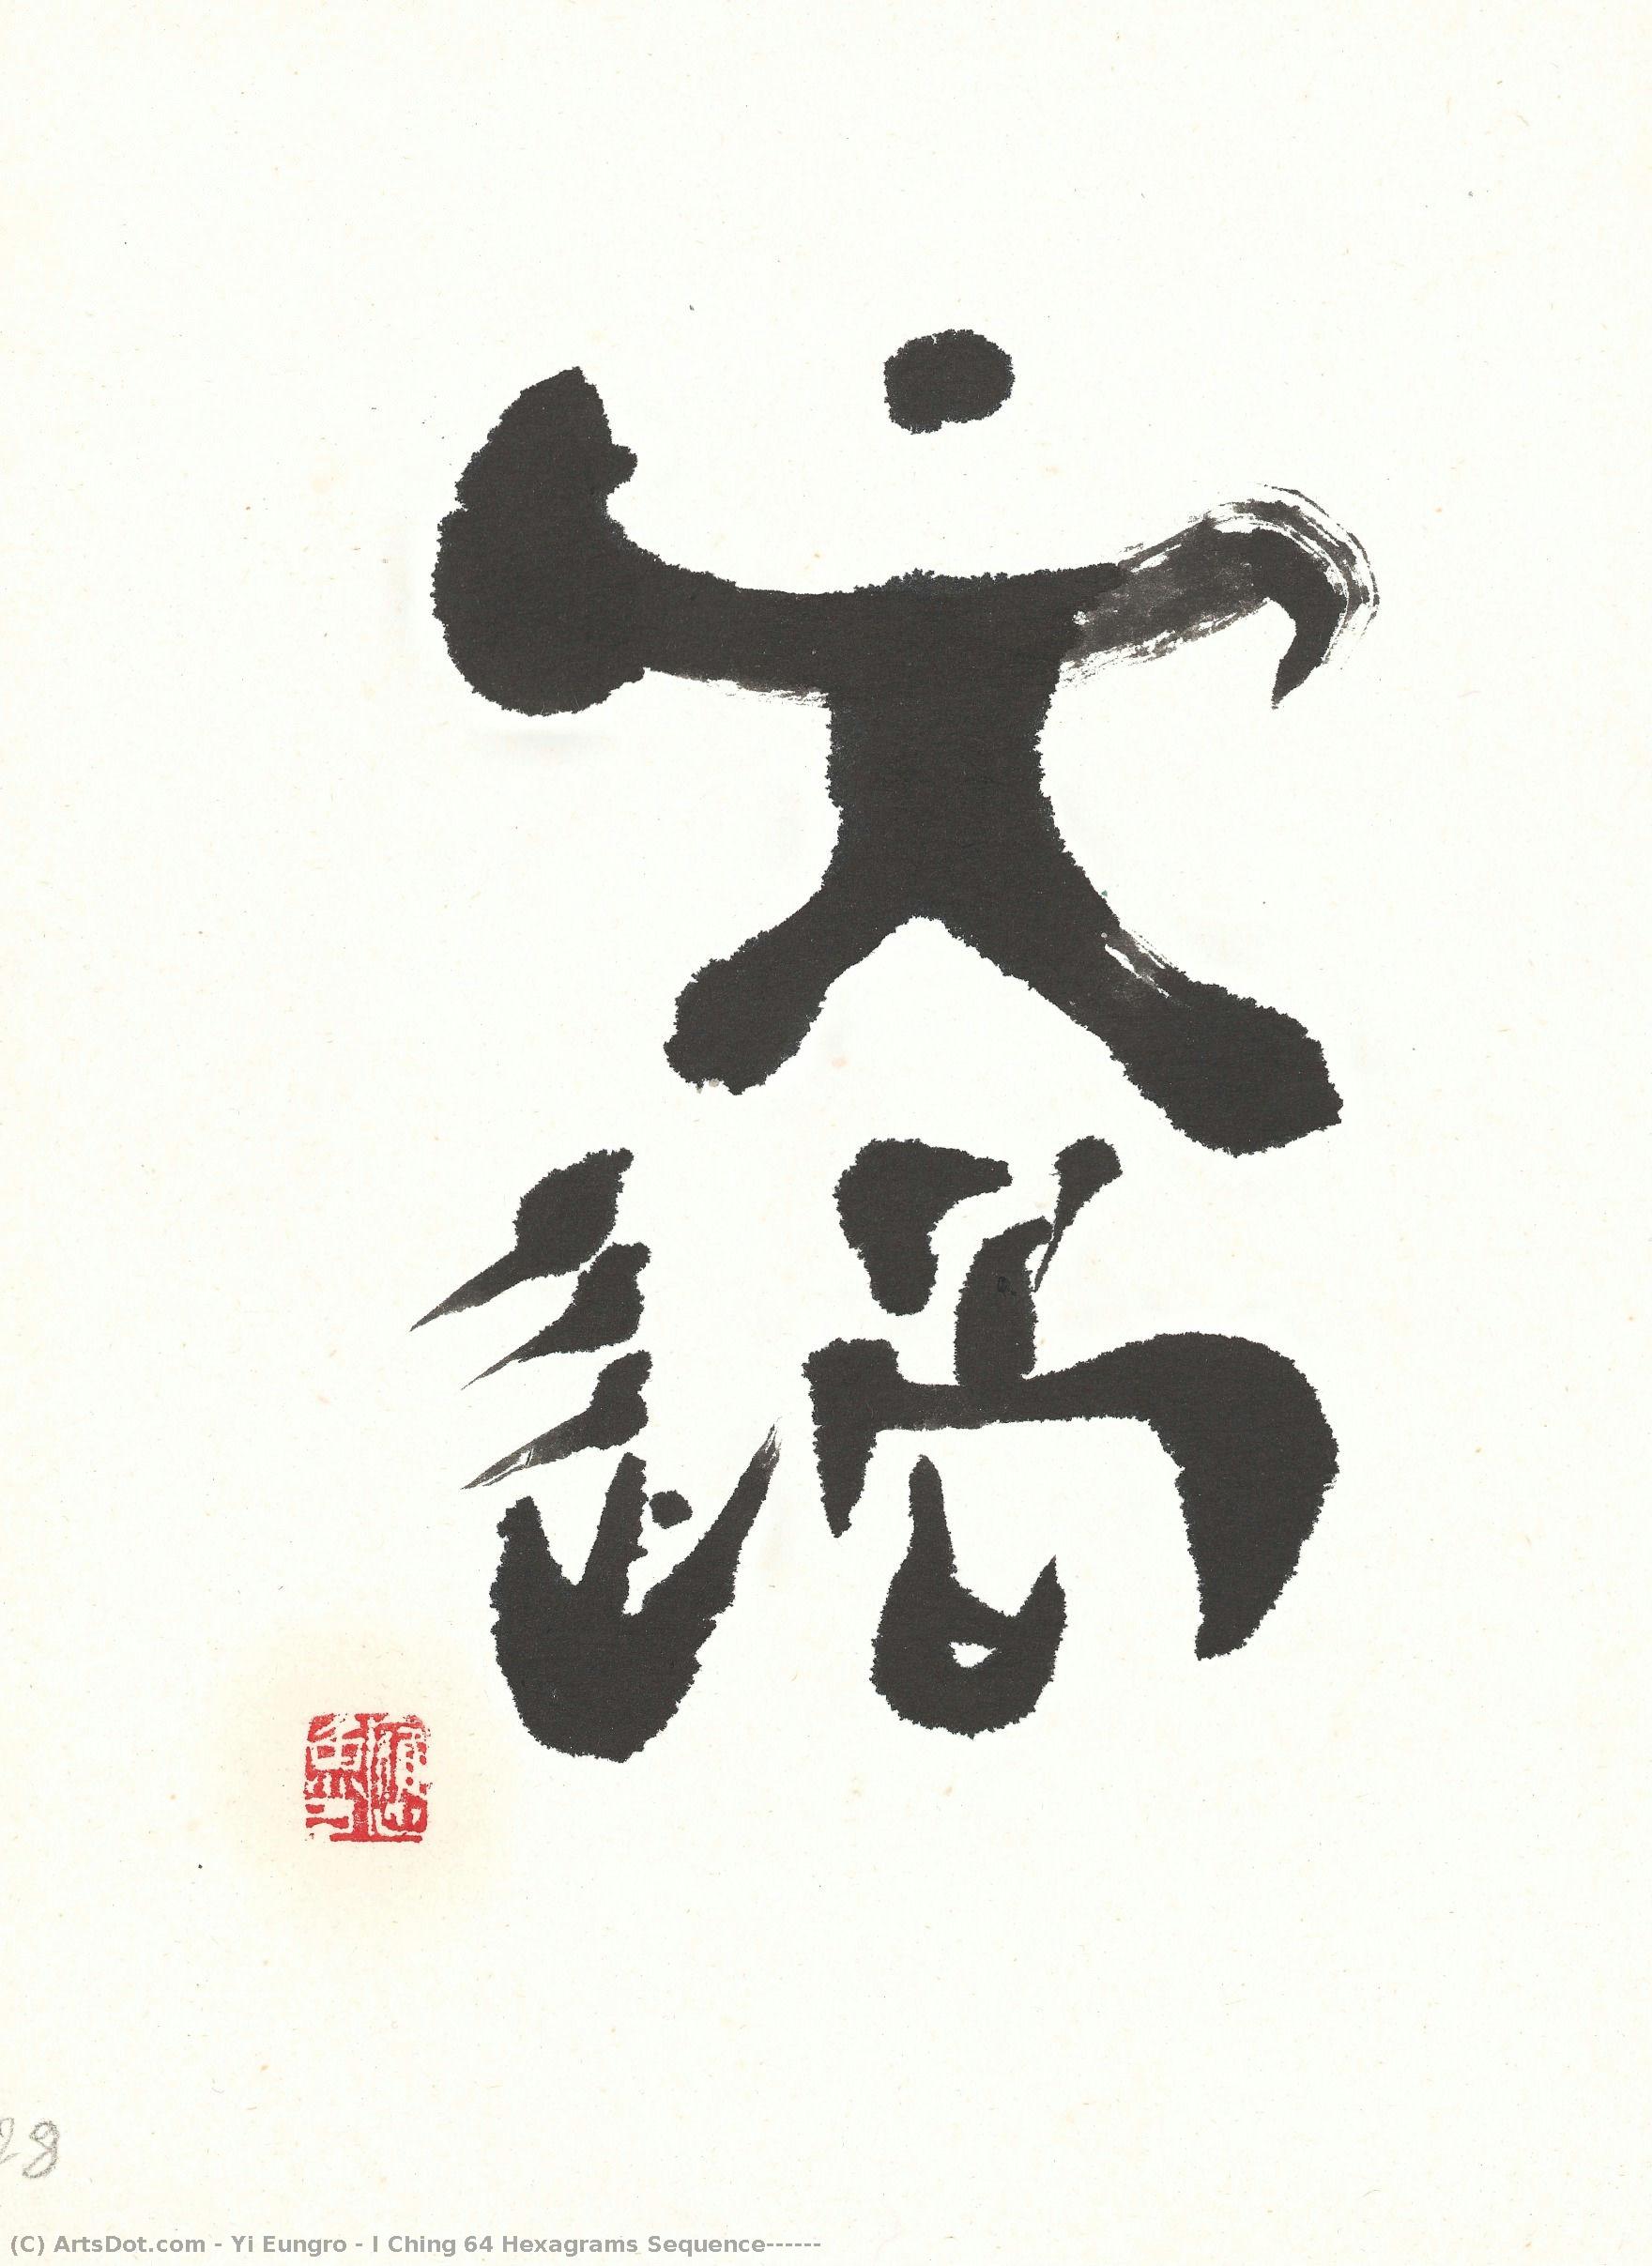 大過
28
(C) ArtsDot.com - Yi Eungro - I Ching 64 Hexagrams Sequence------